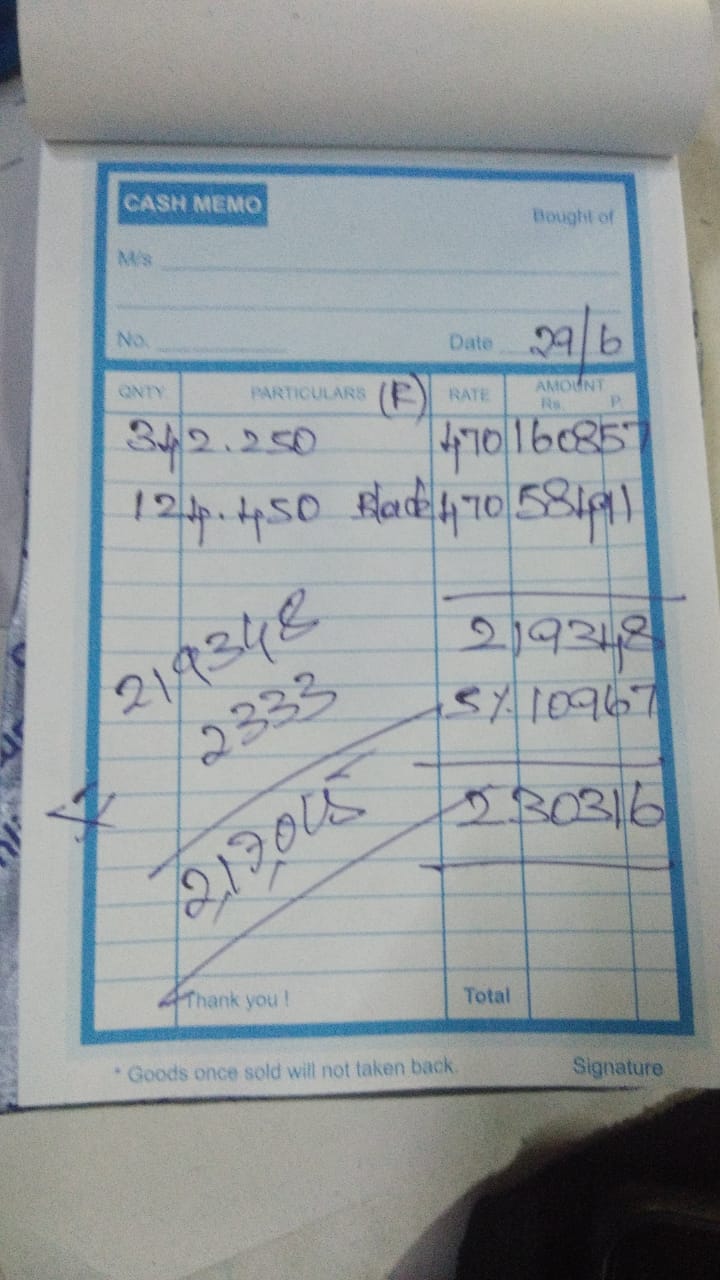 CASH MEMO
Bought of
M/s
No. Date 29/6
QNTY. PARTICULARS (F) RATE AMOUNT
Rs. P.
342.250 470 160857
124.450 Black 470 58491
219348
219348
2333
5% 10967
217,015
230316
Thank you ! Total
* Goods once sold will not taken back. Signature